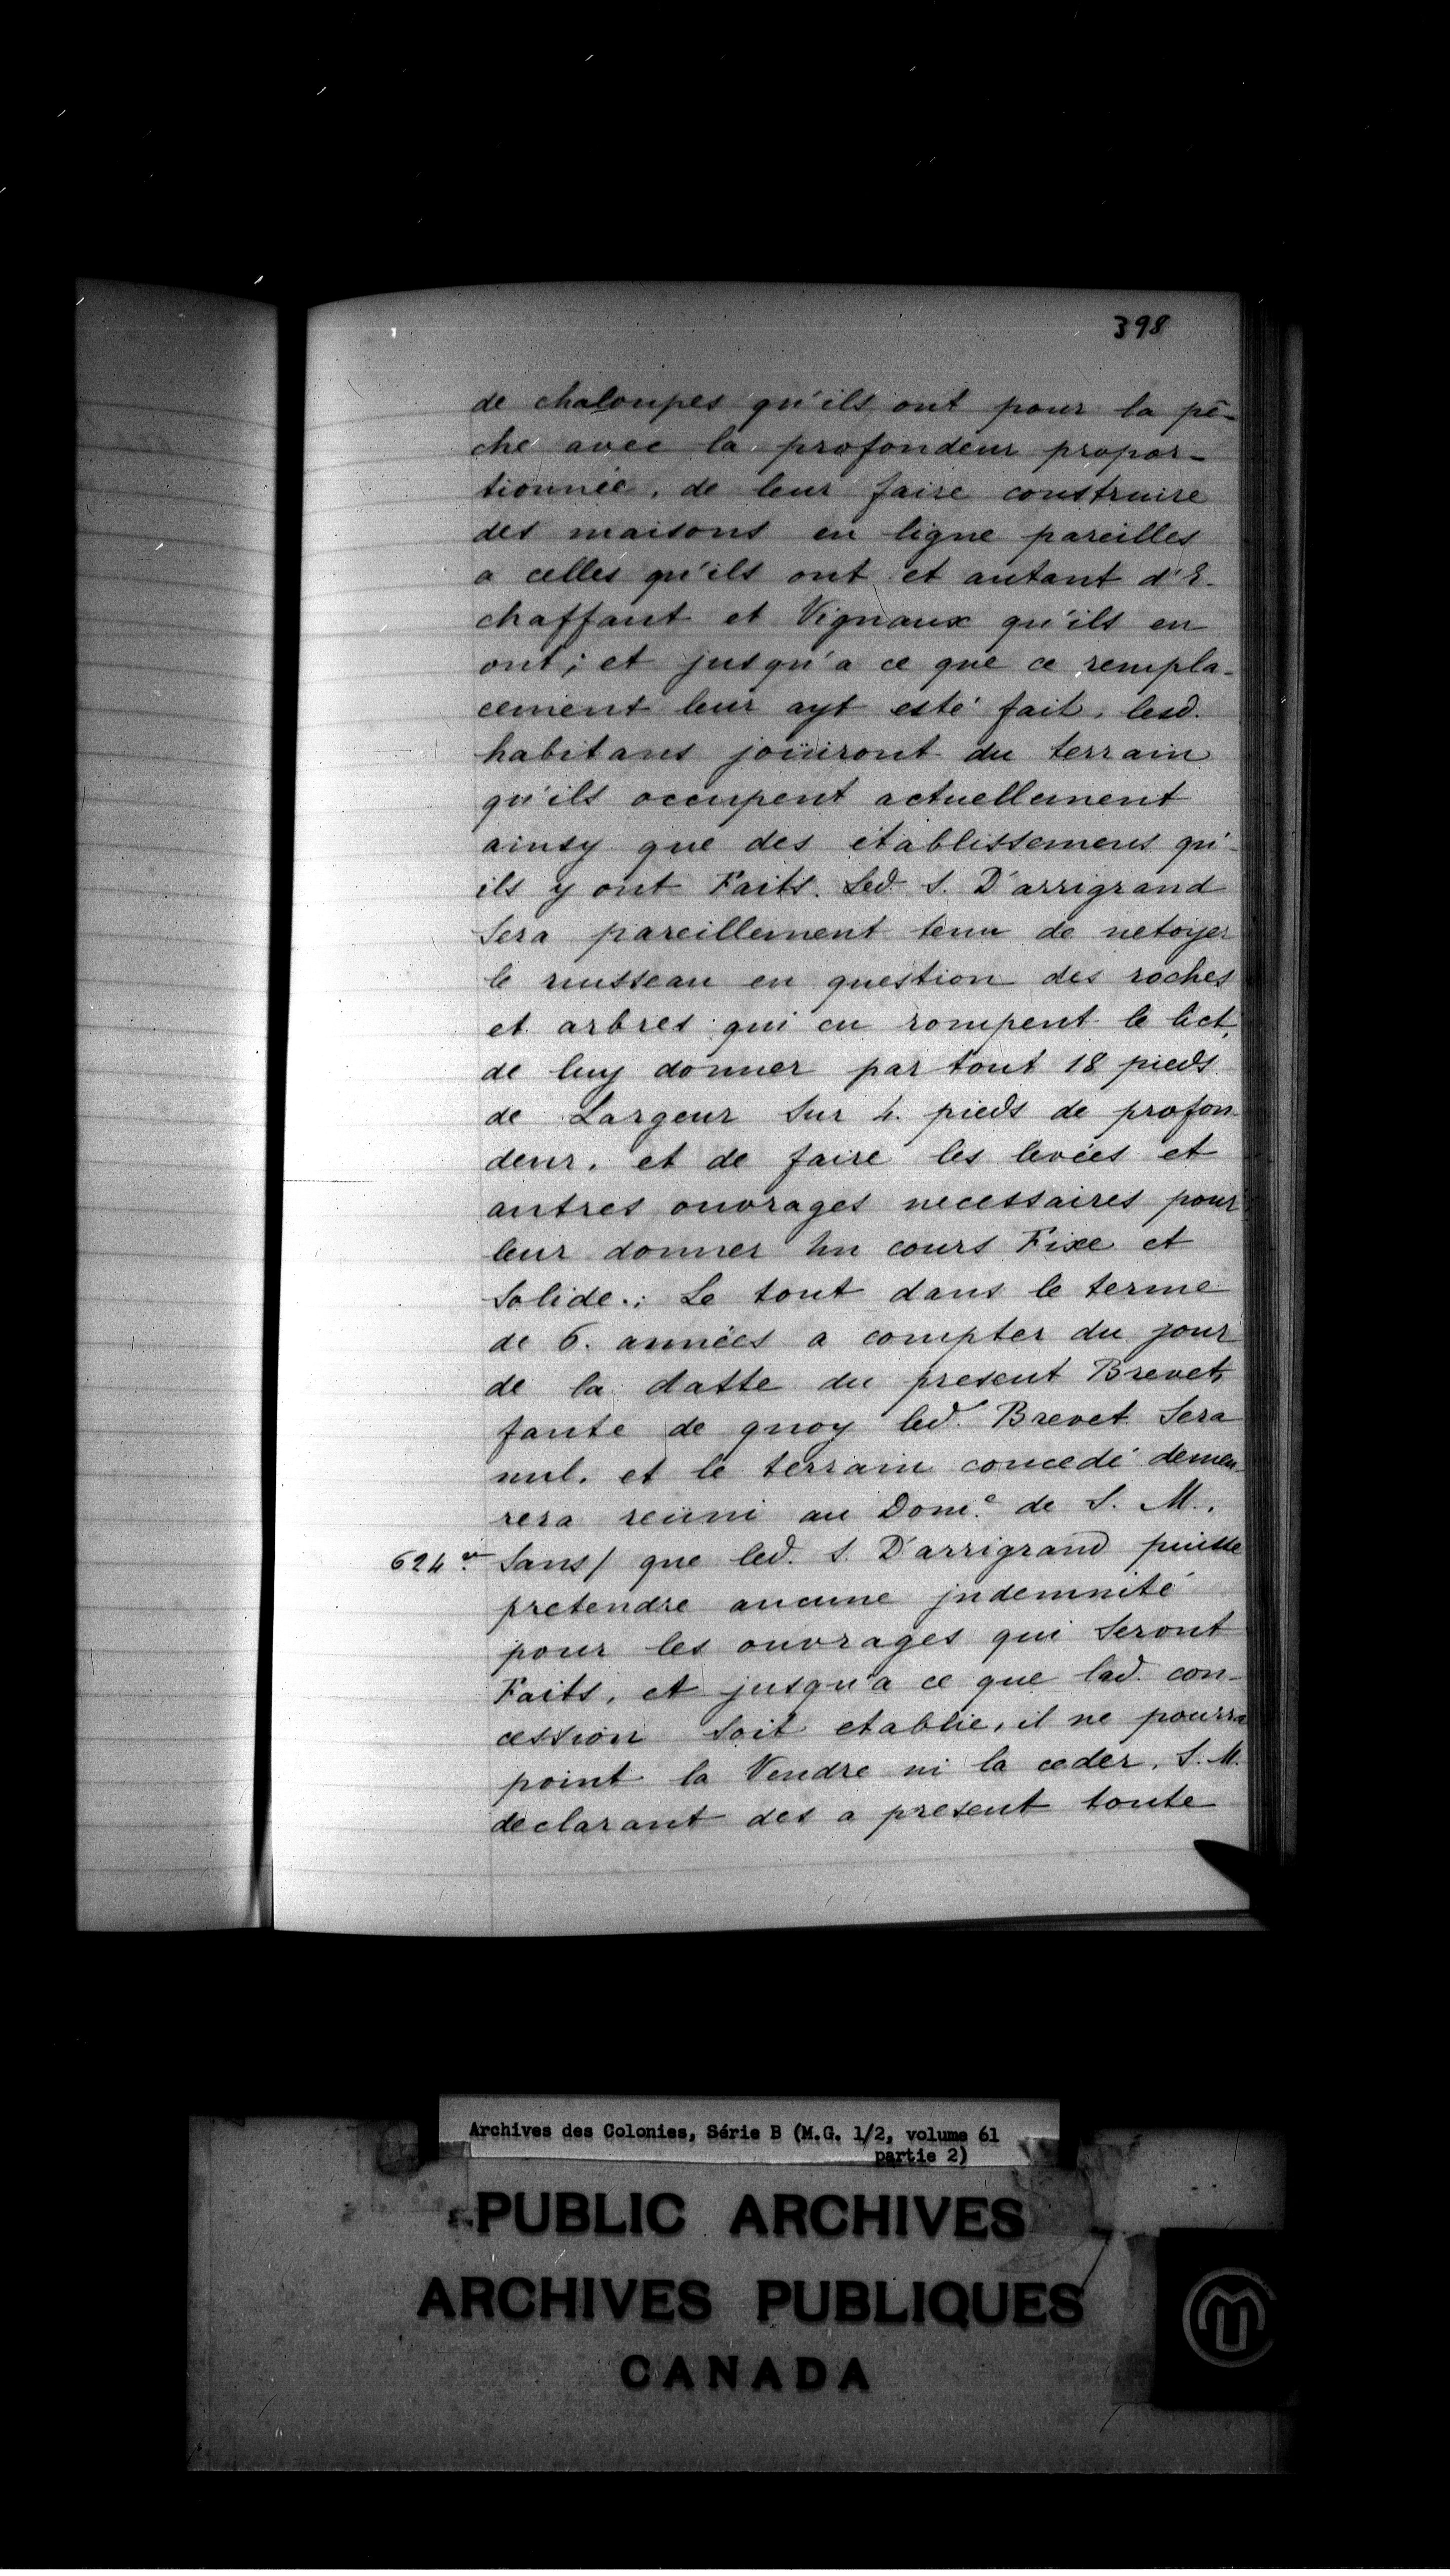 398
de chaloupes qu'ils ont pour la pê-
che avec la profondeur propor-
tionnée, de leur faire construire
des maisons en ligne pareilles
a celles qu'ils ont et autant d'E-
chaffaut et Vignaux qu'ils en
ont; et jusqu'a ce que ce rempla-
cement leur ayt esté fait, lesd.
habitans joüiront du terrain
qu'ils occupent actuellement
ainsy que des établissemens qu'
ils y ont Faits. Led S. D'arrigrand
Sera pareillement tenu de netoyer
le ruisseau en question des roches
et arbres qui en rompent le lict,
de luy donner par tout 18 pieds
de Largeur Sur 4. pieds de profon-
deur, et de faire les levées et
autres ouvrages necessaires pour
leur donner Un cours Fixe et
Solide.; Le tout dans le terme
de 6. années a compter du jour
de la datte du present Brevet,
faute de quoy led. Brevet Sera
nul, et le terrain concedé demeu-
rera reüni au Dom.e de S. M.
624 vo. Sans/ que led. S. D'arrigrand puisse
pretendre aucune jndemnité
pour les ouvrages qui Seront
Faits, et jusqu'a ce que lad. con-
cession Soit etablie, il ne pourra
point la Vendre ni la ceder, S. M.
declarant des a present toute
Archives des Colonies, Série B (M.G. 1/2, volume 61
partie 2)
PUBLIC ARCHIVES
ARCHIVES PUBLIQUES
CANADA